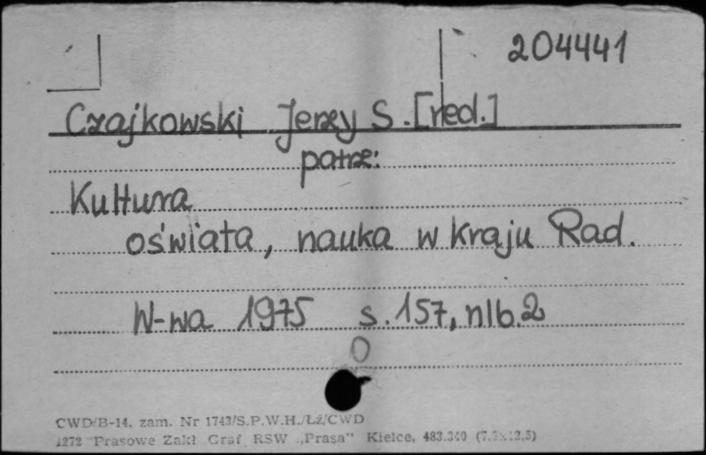 204441
Czajkowski Jerzy S. [red.]
patrz:
Kultura
oświata, nauka w Kraju Rad.
W-wa 1975 s. 157, nlb. 2
CWD/B-14. zam. Nr 1743/S.P.W.H./Łż/CWD
1272 Prasowe Zakł. Graf. RSW „Prasa" Kielce. 483.340 (7.5x12.5)